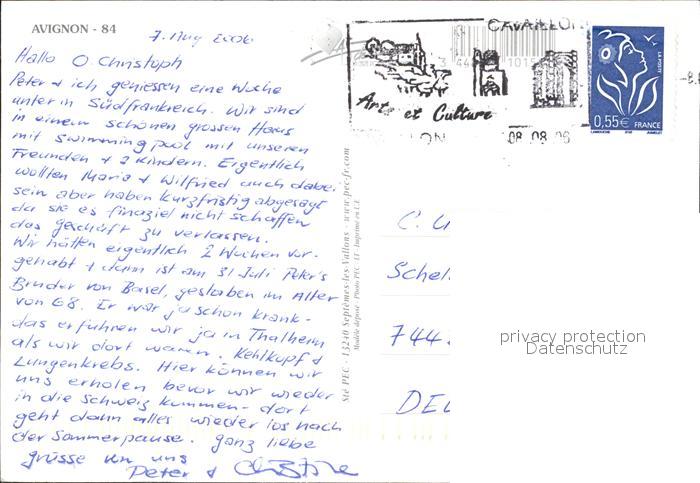 AVIGNON - 84
7. Aug 2006
Hallo O. Christoph
Peter + ich geniessen eine Woche
unten in Südfrankreich. Wir sind
in einem schönen grossen Haus
mit swimmingpool mit unseren
Freunden + 2 Kindern. Eigentlich
wollten Maria + Wilfried auch dabei
sein aber haben kurzfristig abgesagt
da sie es finaziel nicht schaffen
das geschäft zu verlassen.
Wir hätten eigentlich 2 Wochen vor-
gehabt + dann ist am 31 Juli Peter's
Bruder von Basel, gestorben im Alter
von 68. Er war ja schon krank-
das erfuhren wir ja in Thalheim
als wir dort waren. Kehlkopf +
Lungenkrebs. Hier können wir
uns erholen bevor wir wieder
in die Schweiz kommen - dort
geht dann alles wieder los nach
der Sommerpause. ganz liebe
grüsse von uns
Peter + Christine
Sté PEC - 13240 Septèmes-les-Vallons - www.pec-fr.com
Modèle déposé - Photo PEC - LT - Imprimé en C.E.
CAVAILLON
Arts et Culture
08.08.06
0,55€ FRANCE
LA POSTE
C. U
Schel
744
DEU
privacy protection
Datenschutz